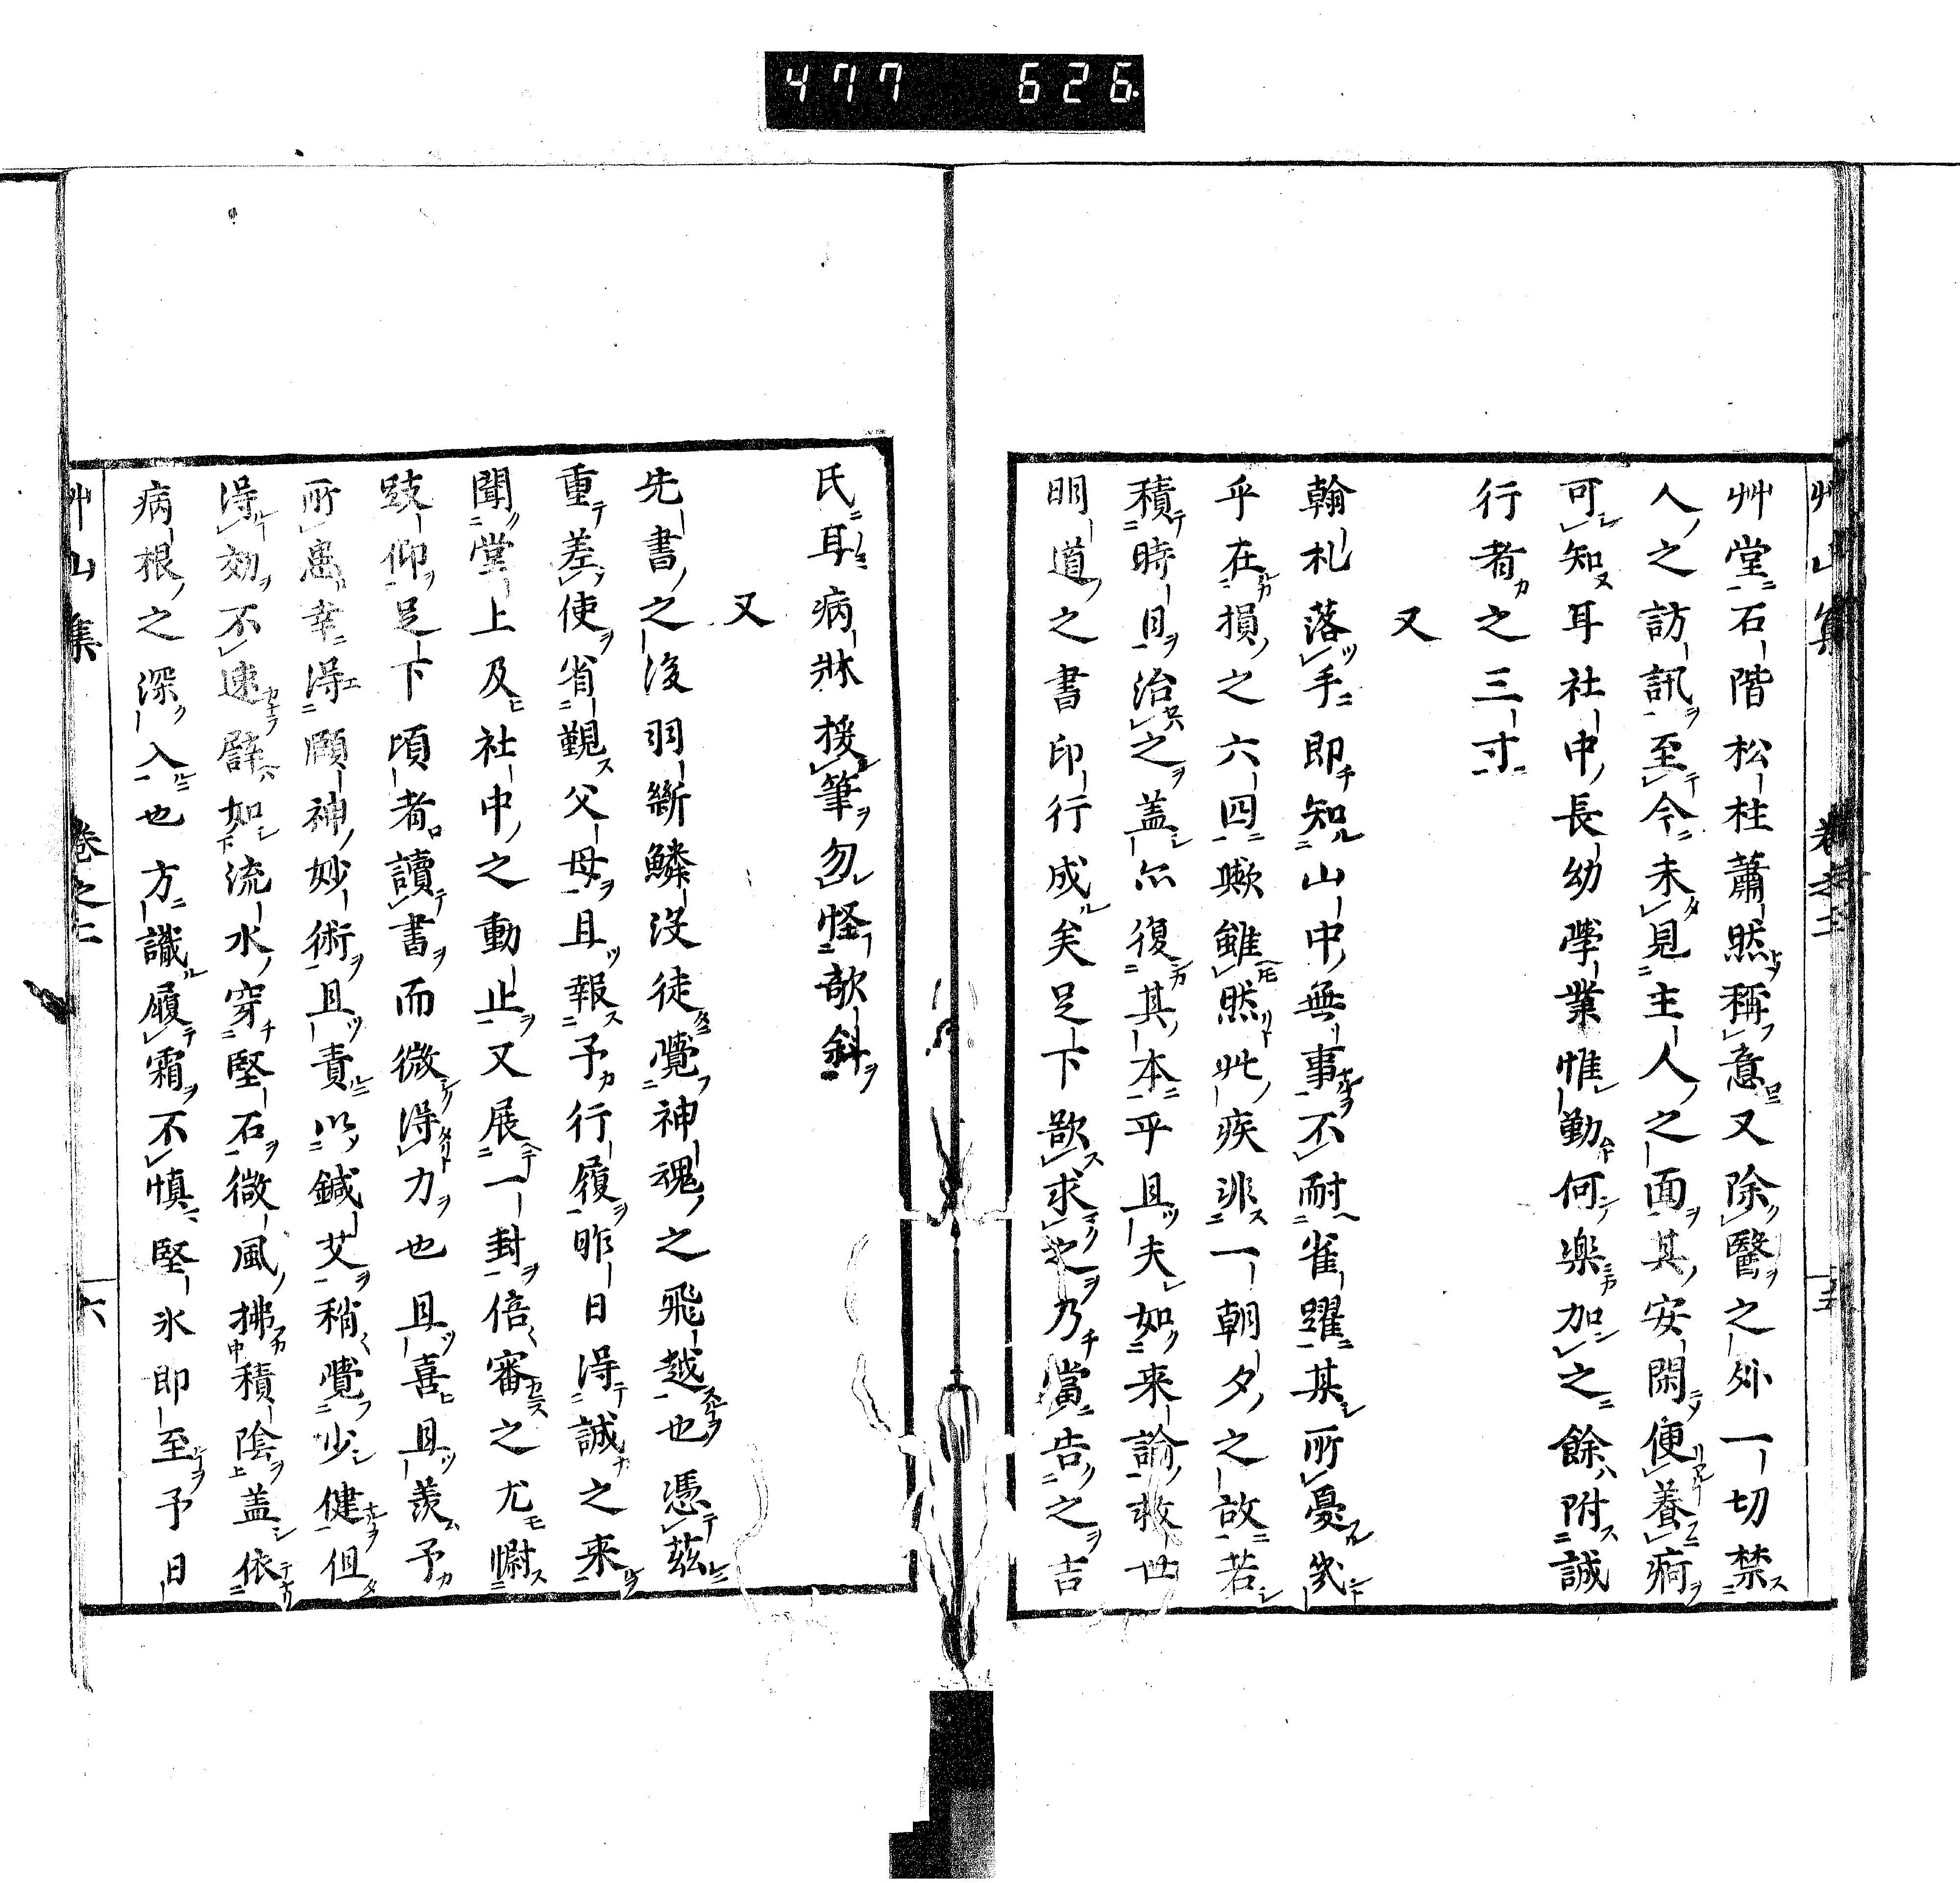 477 626
艸堂石階松柱蕭然稱意又除醫之外一切禁
人之訪訊至今未見主人之面其安閑便養痾
可知耳社中長幼學業惟勤何樂加之餘附誠
行者之三寸
又
翰札落手即知山中無事不耐雀躍某所憂幾
乎在損之六四𤸃雖然此疾非一朝夕之故若
積時日治之盖亦復其本乎且夫如来諭救世
明道之書印行成矣足下欲求之乃當告之吉
氏耳病牀援筆勿怪欹斜
又
先書之後羽斷鱗没徒覺神魂之飛越也憑茲
重差使省覲父母且報予行履昨日得誠之来
聞堂上及社中之動止又展一封倍審之尤慰
跂仰足下頃者讀書而微得力也且喜且羨予
所患幸得顧神妙術且責以鍼艾稍覺少健但
得効不速辟如流水穿堅石微風拂積陰盖依
病根之深入也方識履霜不慎堅氷即至予日
艸山集 卷之二 六